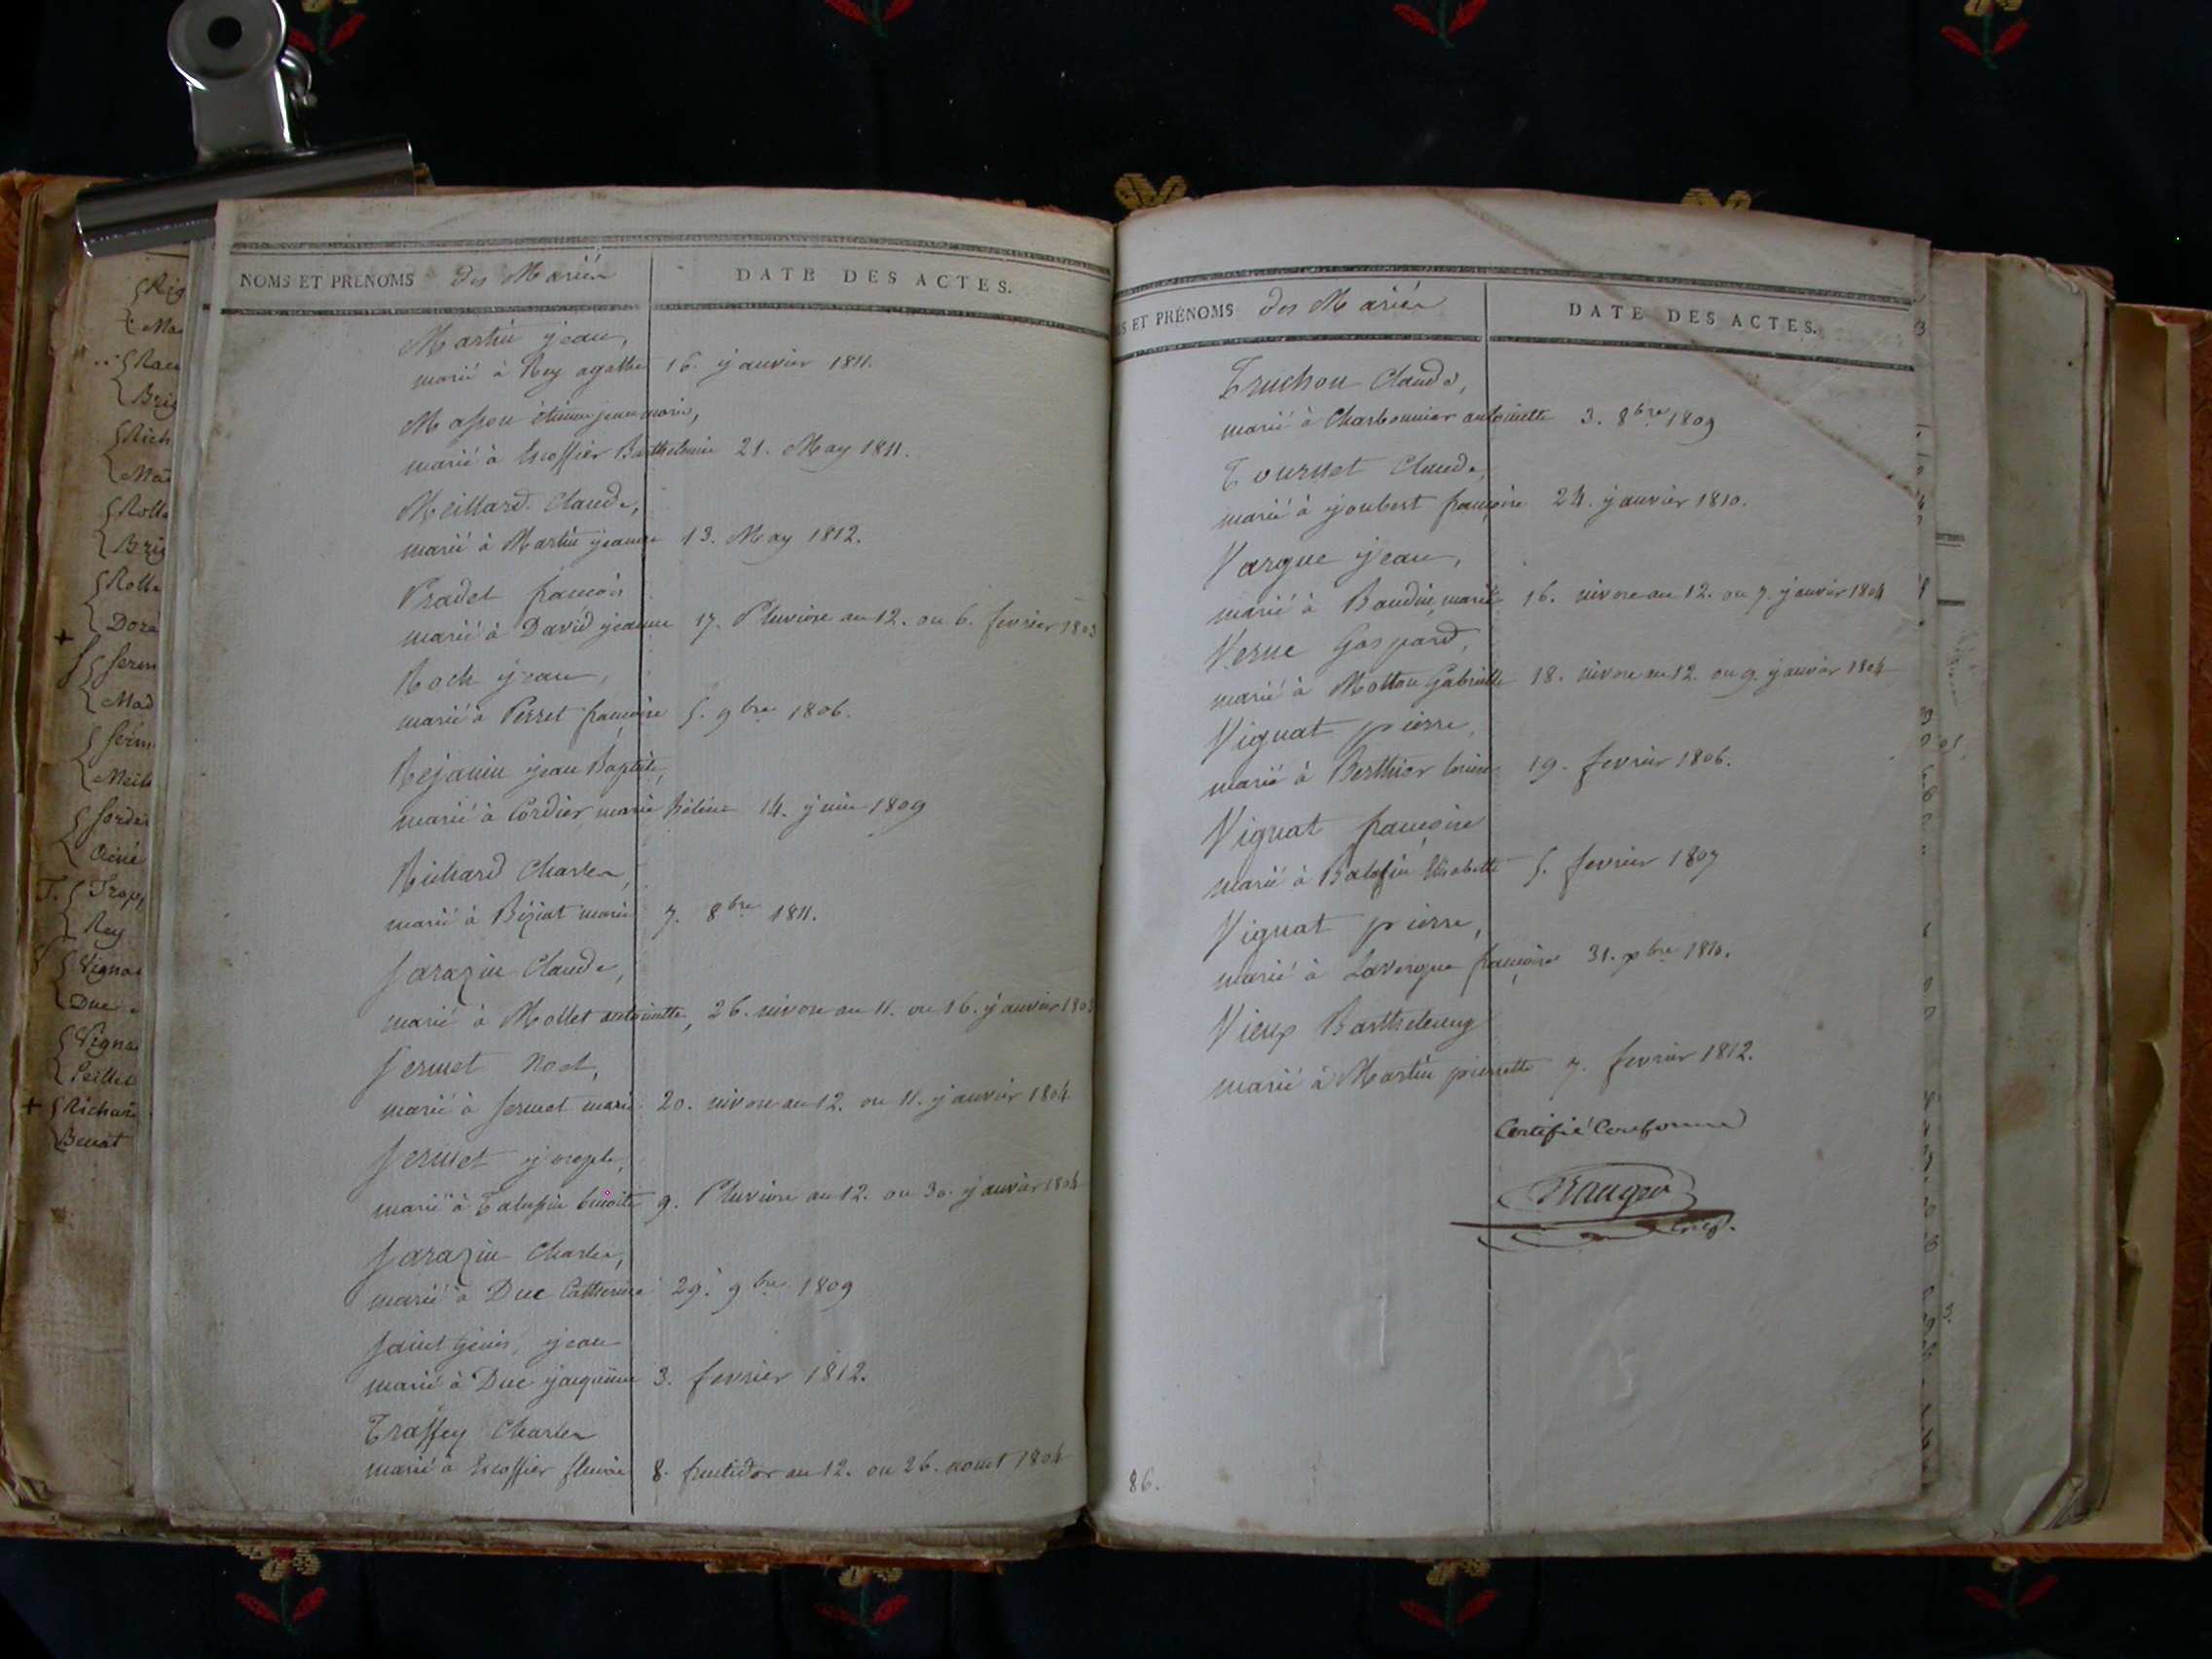 NOMS ET PRENOMS des Mariés
DATE DES ACTES.
Martin jean,
marié à Rey agathe 16. janvier 1811.
Masson étienne jean marie,
marié à Escoffier Barthelemie 21. May 1811.
Meillard Claude,
marié à Martin jeanne 13. May 1812.
Pradel françois
marié à David jeanne 17. Pluviose an 12. ou 6. fevrier 1803
Roch jean,
marié à Perret françoise 5. 9bre 1806.
Rejanin jean Baptiste,
marié à Cordier marie hélène 14. juin 1809
Richard Charles,
marié à Béziat marie 7. 8bre 1811.
Sarazin Claude,
marié à Mollet antoinette, 26. nivose an 11. ou 16. janvier 1803
Sermet Noel,
marié à Sermet marie 20. nivose an 12. ou 11. janvier 1804
Sermet joseph,
marié à benoite 9. Pluviose an 12. ou 30. janvier 1804
Sarazin Charles,
marié à Duc Catherine 29. 9bre 1809
Saint Genis, jean
marié à Duc jacqueline 3. fevrier 1812.
Traffey Charles
marié à Escoffier fleurie 8. fructidor an 12. ou 26. aoust 1804
S ET PRÉNOMS des Mariés
DATE DES ACTES.
Truchon Claude,
marié à Charbonnier antoinette 3. 8bre 1809
Tournet Claude,
marié à joubert françoise 24. janvier 1810.
Vargue jean,
marié à Baudin marie 16. nivose an 12. ou 7. janvier 1804
Verne Gaspard,
marié à Motton Gabrielle 18. nivose an 12. ou 9. janvier 1804
Vignat pierre,
marié à Berthier 19. fevrier 1806.
Vignat françoise
marié à Elisabette 5. fevrier 1807
Vignat pierre,
marié à Lavergne françoise 31. xbre 1810.
Vieux Barthelemy
marié à Martin pierrette 7. fevrier 1812.
Certifié Conforme
86.
Rig
Ma
Rich
Rolle
Brig
Rolle
Mad
Rey
Vigna
Duc
Vigna
Peillet
Richard